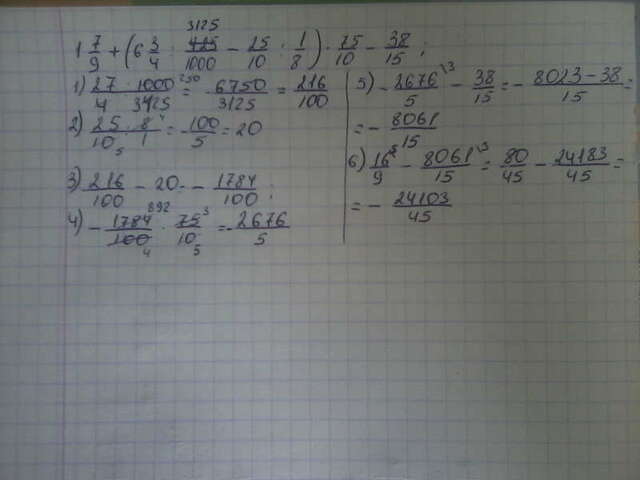 3125
1 7/9 + (6 3/4 : 425/1000 - 25/10 : 1/8) · 75/10 - 38/15 ;
1) 27/4 · 1000/3125 250 = 6750/3125 = 216/100
2) 25/10 5 · 8/1 4 = 100/5 = 20
3) 216/100 - 20 = - 1784/100 ;
4) - 1784/100 892 4 · 75/10 3 5 = - 2676/5
5) - 2676/5 \3 - 38/15 = - 8023-38/15 =
= - 8061/15
6) 16/9 \5 - 8061/15 \3 = 80/45 - 24183/45 =
= - 24103/45